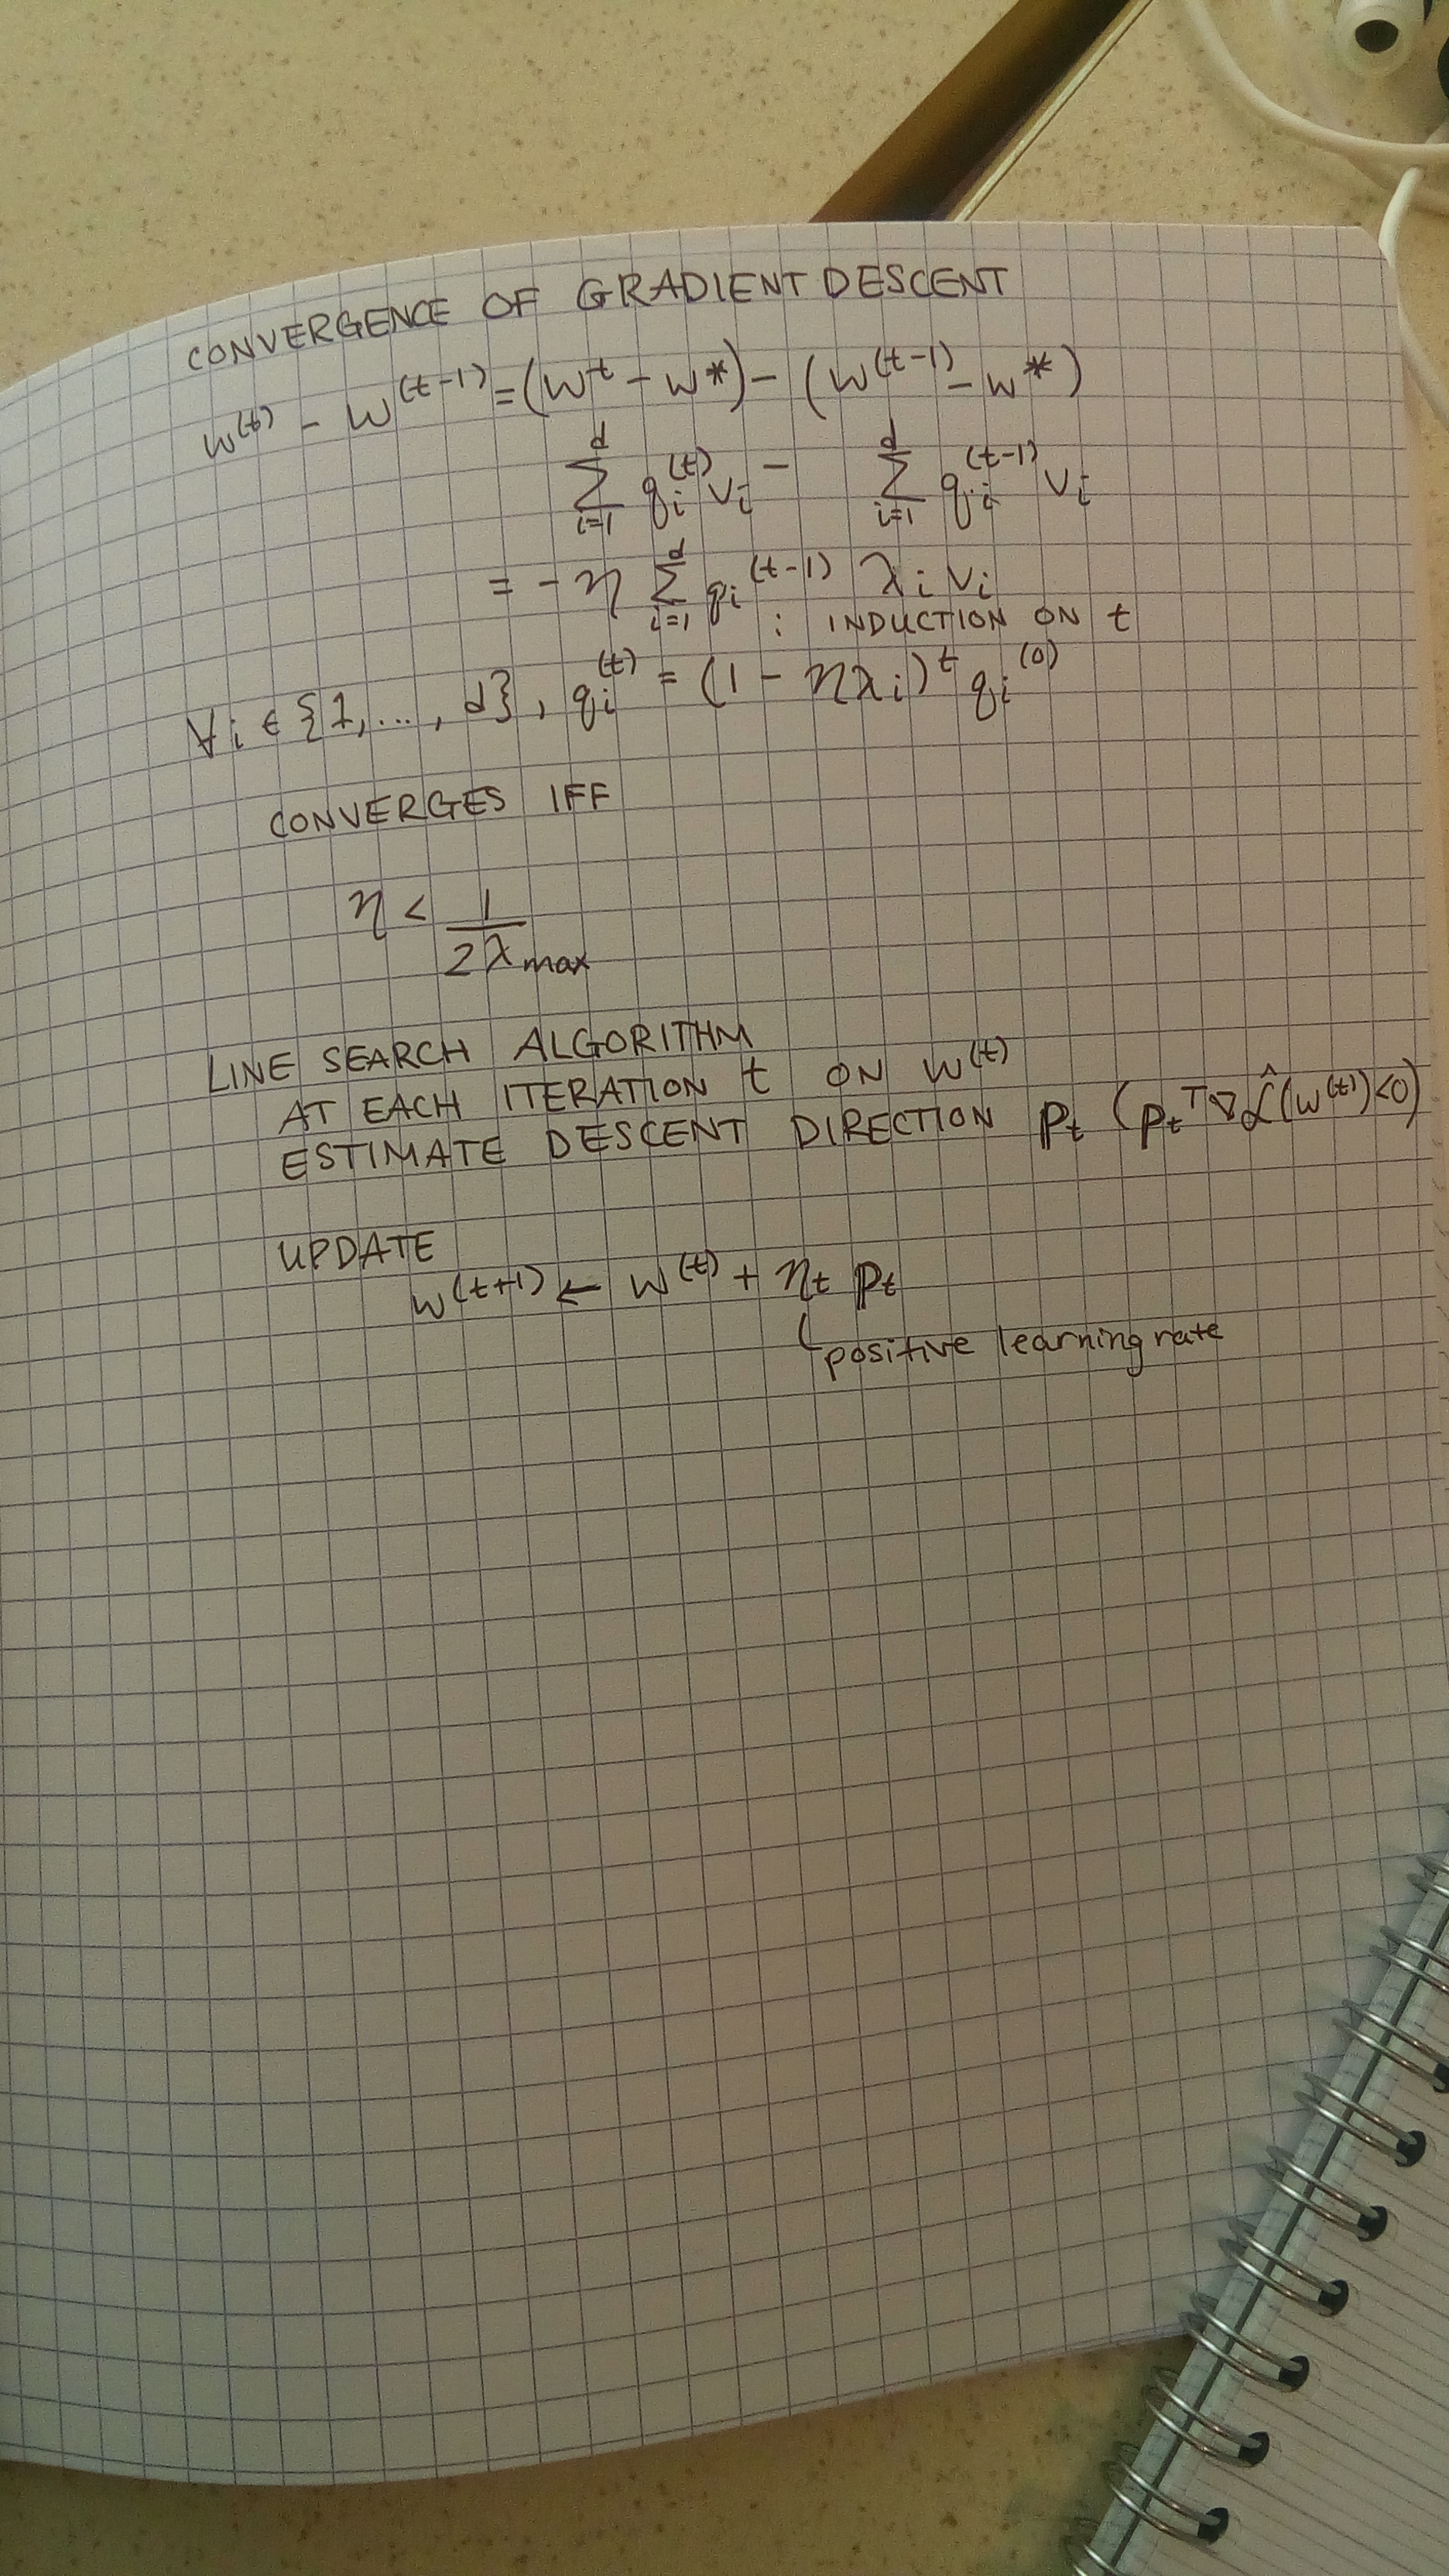 CONVERGENCE OF GRADIENT DESCENT
w^(t) - w^(t-1) = (w^t - w*) - (w^(t-1) - w*)
∑_{i=1}^{d} q_i^(t) v_i - ∑_{i=1}^{d} q_i^(t-1) v_i
= - η ∑_{i=1}^{d} q_i^(t-1) λ_i v_i
: INDUCTION ON t
∀i ∈ {1, ..., d}, q_i^(t) = (1 - ηλ_i)^t q_i^(0)
CONVERGES IFF
η < 1 / 2λ_max
LINE SEARCH ALGORITHM
AT EACH ITERATION t ON w^(t)
ESTIMATE DESCENT DIRECTION p_t (p_t^T ∇L̂(w^(t)) <0)
UPDATE
w^(t+1) ← w^(t) + η_t p_t
positive learning rate